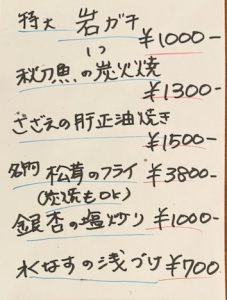 特大 岩ガキ
1つ ¥1000-
秋刀魚の炭火焼
¥1300-
さざえの肝正油焼き
¥1500-
松茸のフライ ¥3800-
(炭焼もOK)
銀杏の塩炒り ¥1000-
水なすの浅づけ ¥700